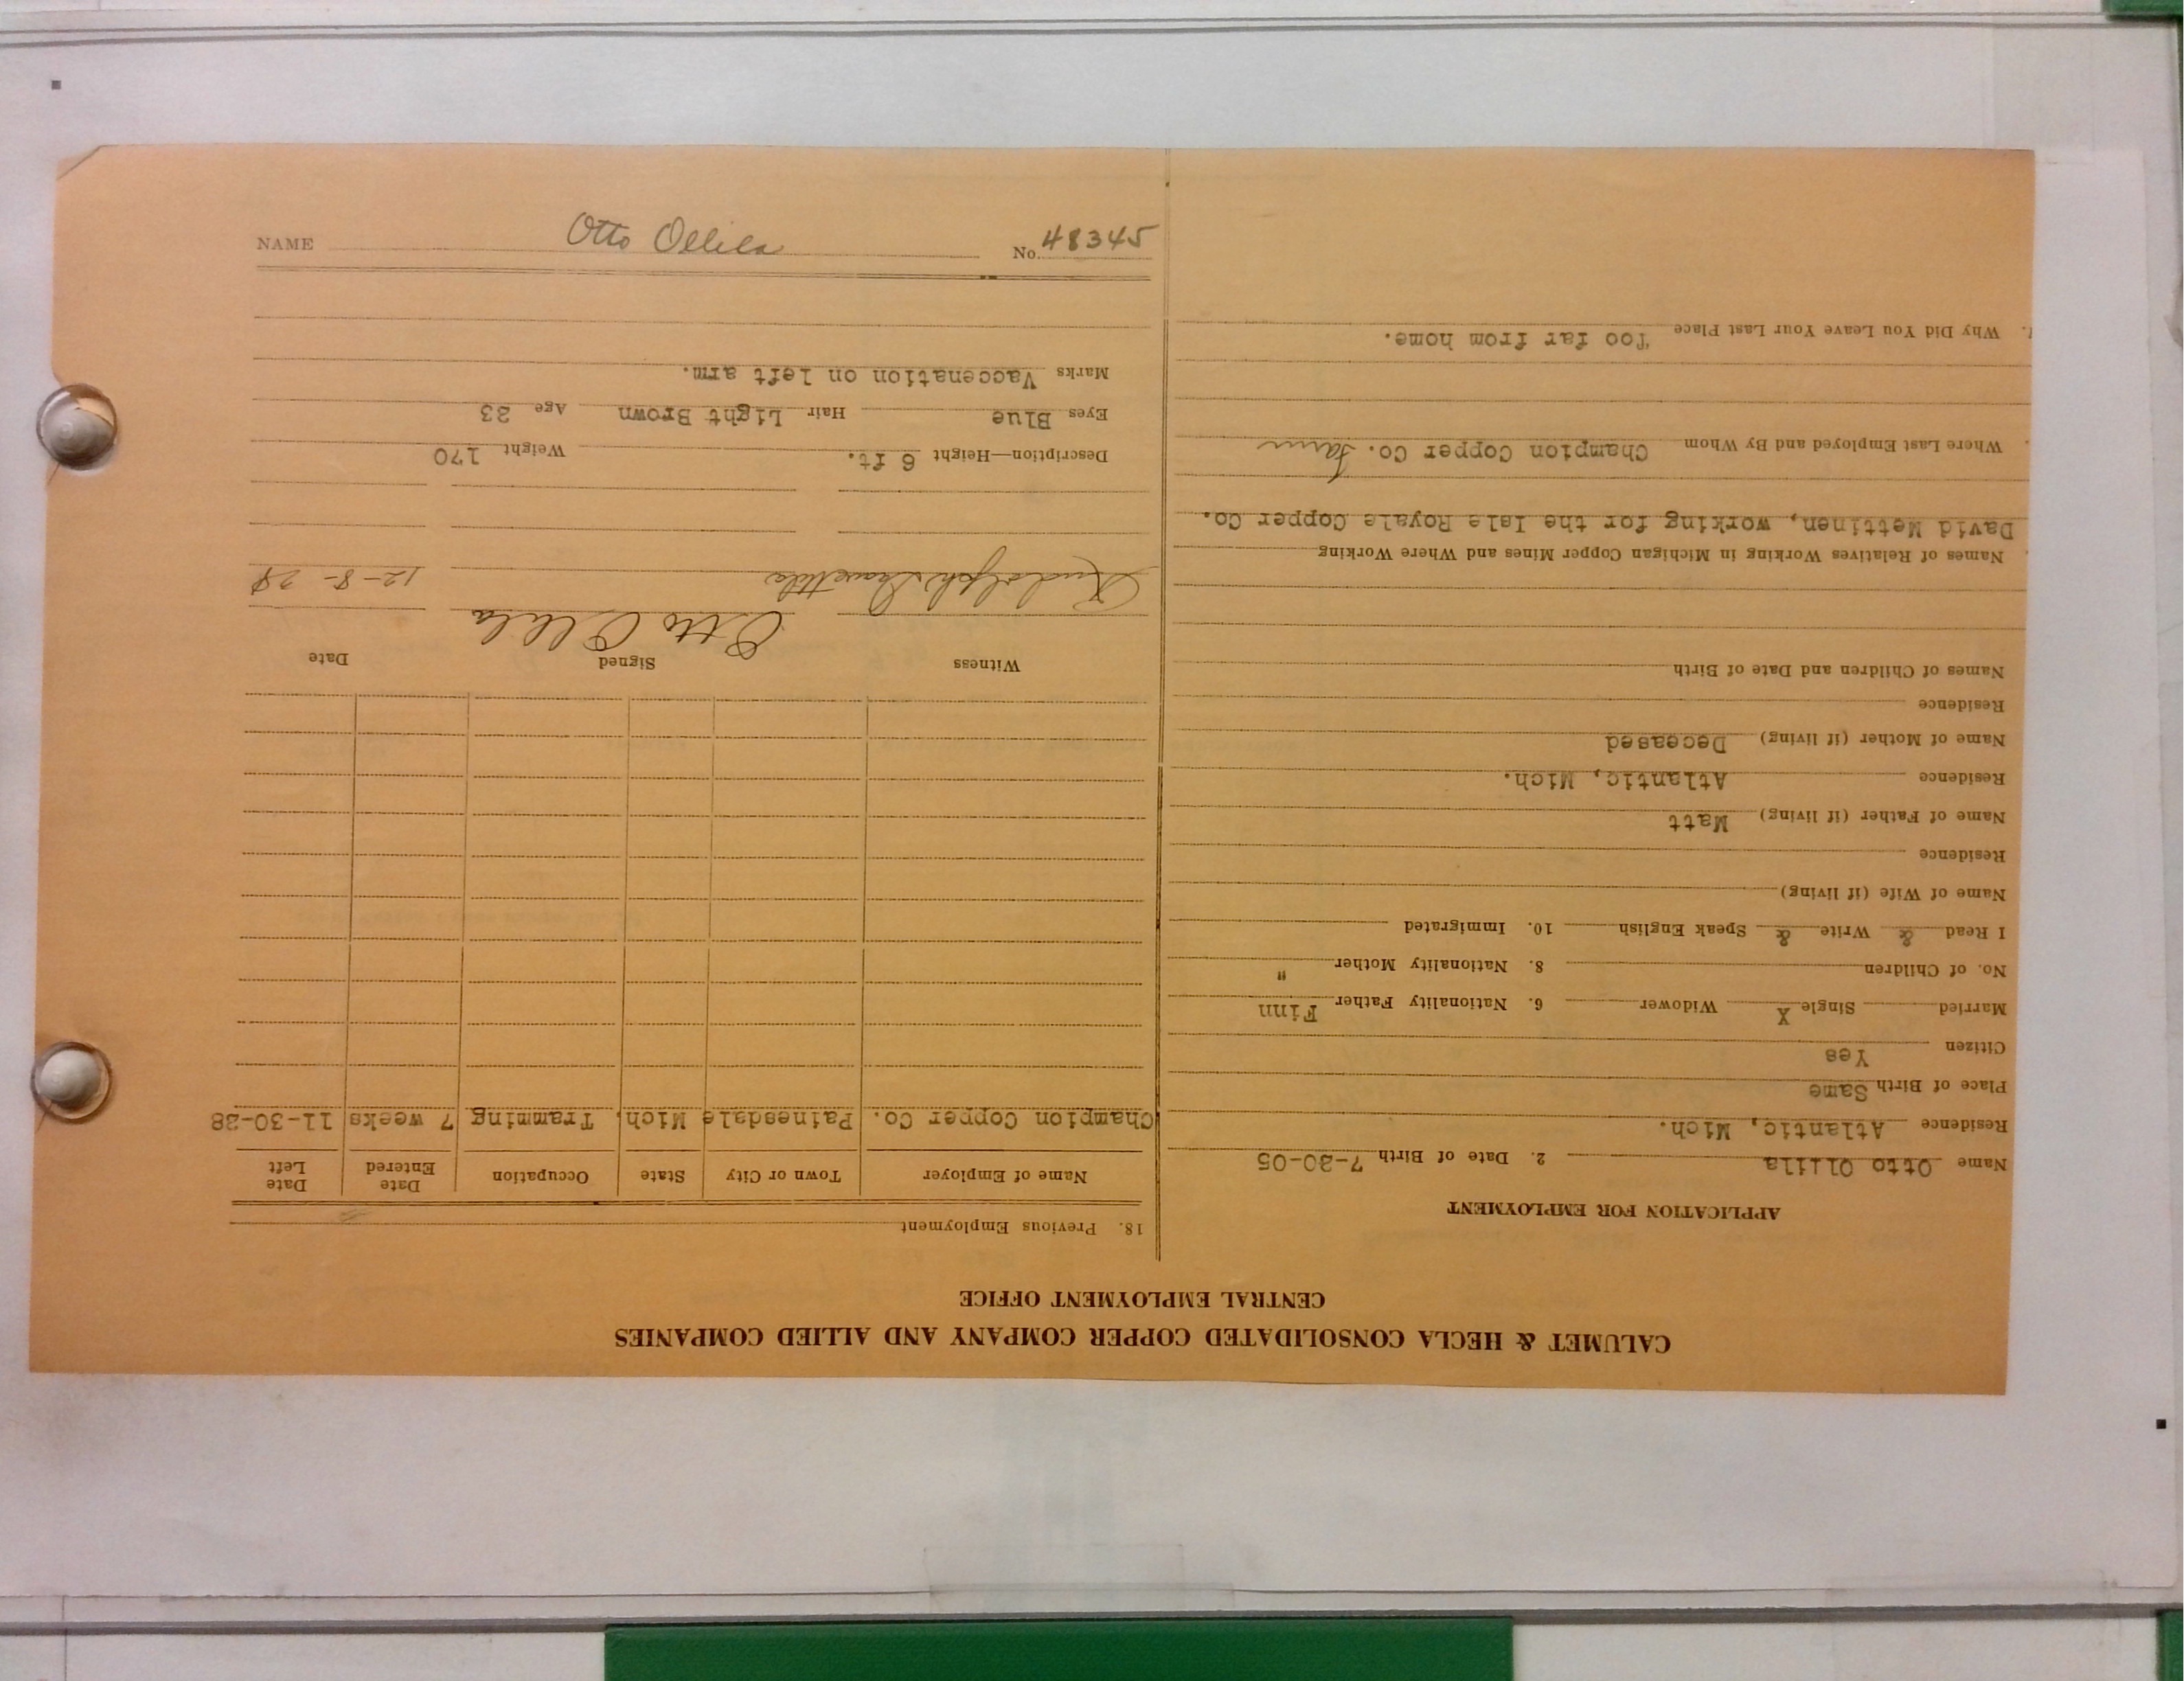 CALUMET & HECLA CONSOLIDATED COPPER COMPANY AND ALLIED COMPANIES
CENTRAL EMPLOYMENT OFFICE
APPLICATION FOR EMPLOYMENT
Name Otto Ollila 2. Date of Birth 7-30-05
Residence Atlantic, Mich.
Place of Birth Same
Citizen Yes
Married Single X Widower 6. Nationality Father Finn
No. of Children 8. Nationality Mother "
I Read & Write & Speak English 10. Immigrated
Name of Wife (if living)
Residence
Name of Father (if living) Matt
Residence Atlantic, Mich.
Name of Mother (if living) Deceased
Residence
Names of Children and Date of Birth
Names of Relatives Working in Michigan Copper Mines and Where Working
David Mettinen, working for the Isle Royale Copper Co.
Where Last Employed and By Whom Champion Copper Co. Farm
Why Did You Leave Your Last Place Too far from home.
18. Previous Employment
Name of Employer Town or City State Occupation Date Entered Date Left
Champion Copper Co. Painesdale Mich. Tramming 7 weeks 11-30-28
Witness Signed Date
Otto Ollila
Rudolph 12-8-28
Description—Height 6 ft. Weight 170
Eyes Blue Hair Light Brown Age 23
Marks Vaccenation on left arm.
NAME Otto Ollila No. 48345